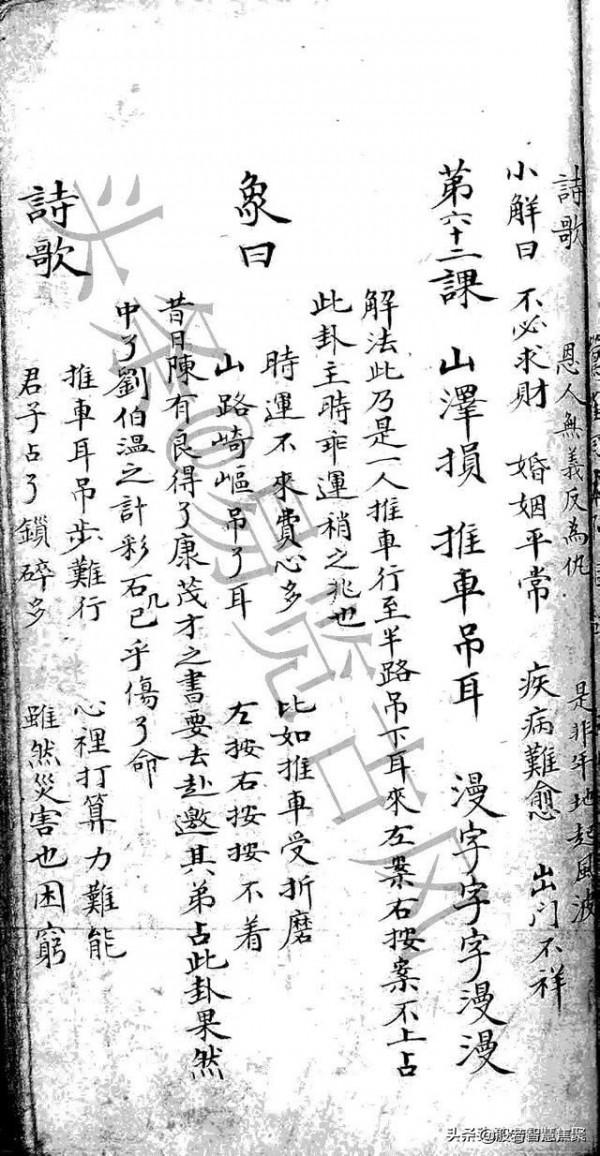 詩歌 恩人無義反為仇 是非平地起風波
小解曰 不必求財 婚姻平常 疾病難愈 出门不祥
第六十二課 山澤損 推車吊耳 漫字字字漫漫
解法此乃是一人推車行至半路吊下耳來左案右按案不上占
此卦主時乖運稍之兆也
象曰
時運不來費心多 比如推車受折磨
山路崎嶇吊了耳 左按右按按不着
昔日陳有良得了康茂才之書要去赴邀其弟占此卦果然
中了劉伯温之計彩石已几乎傷了命
詩歌
推車耳吊步難行 心裡打算力難能
君子占了鎖碎多 雖然災害也困窮
头条@易觉古风
头条@般若智慧焦聚